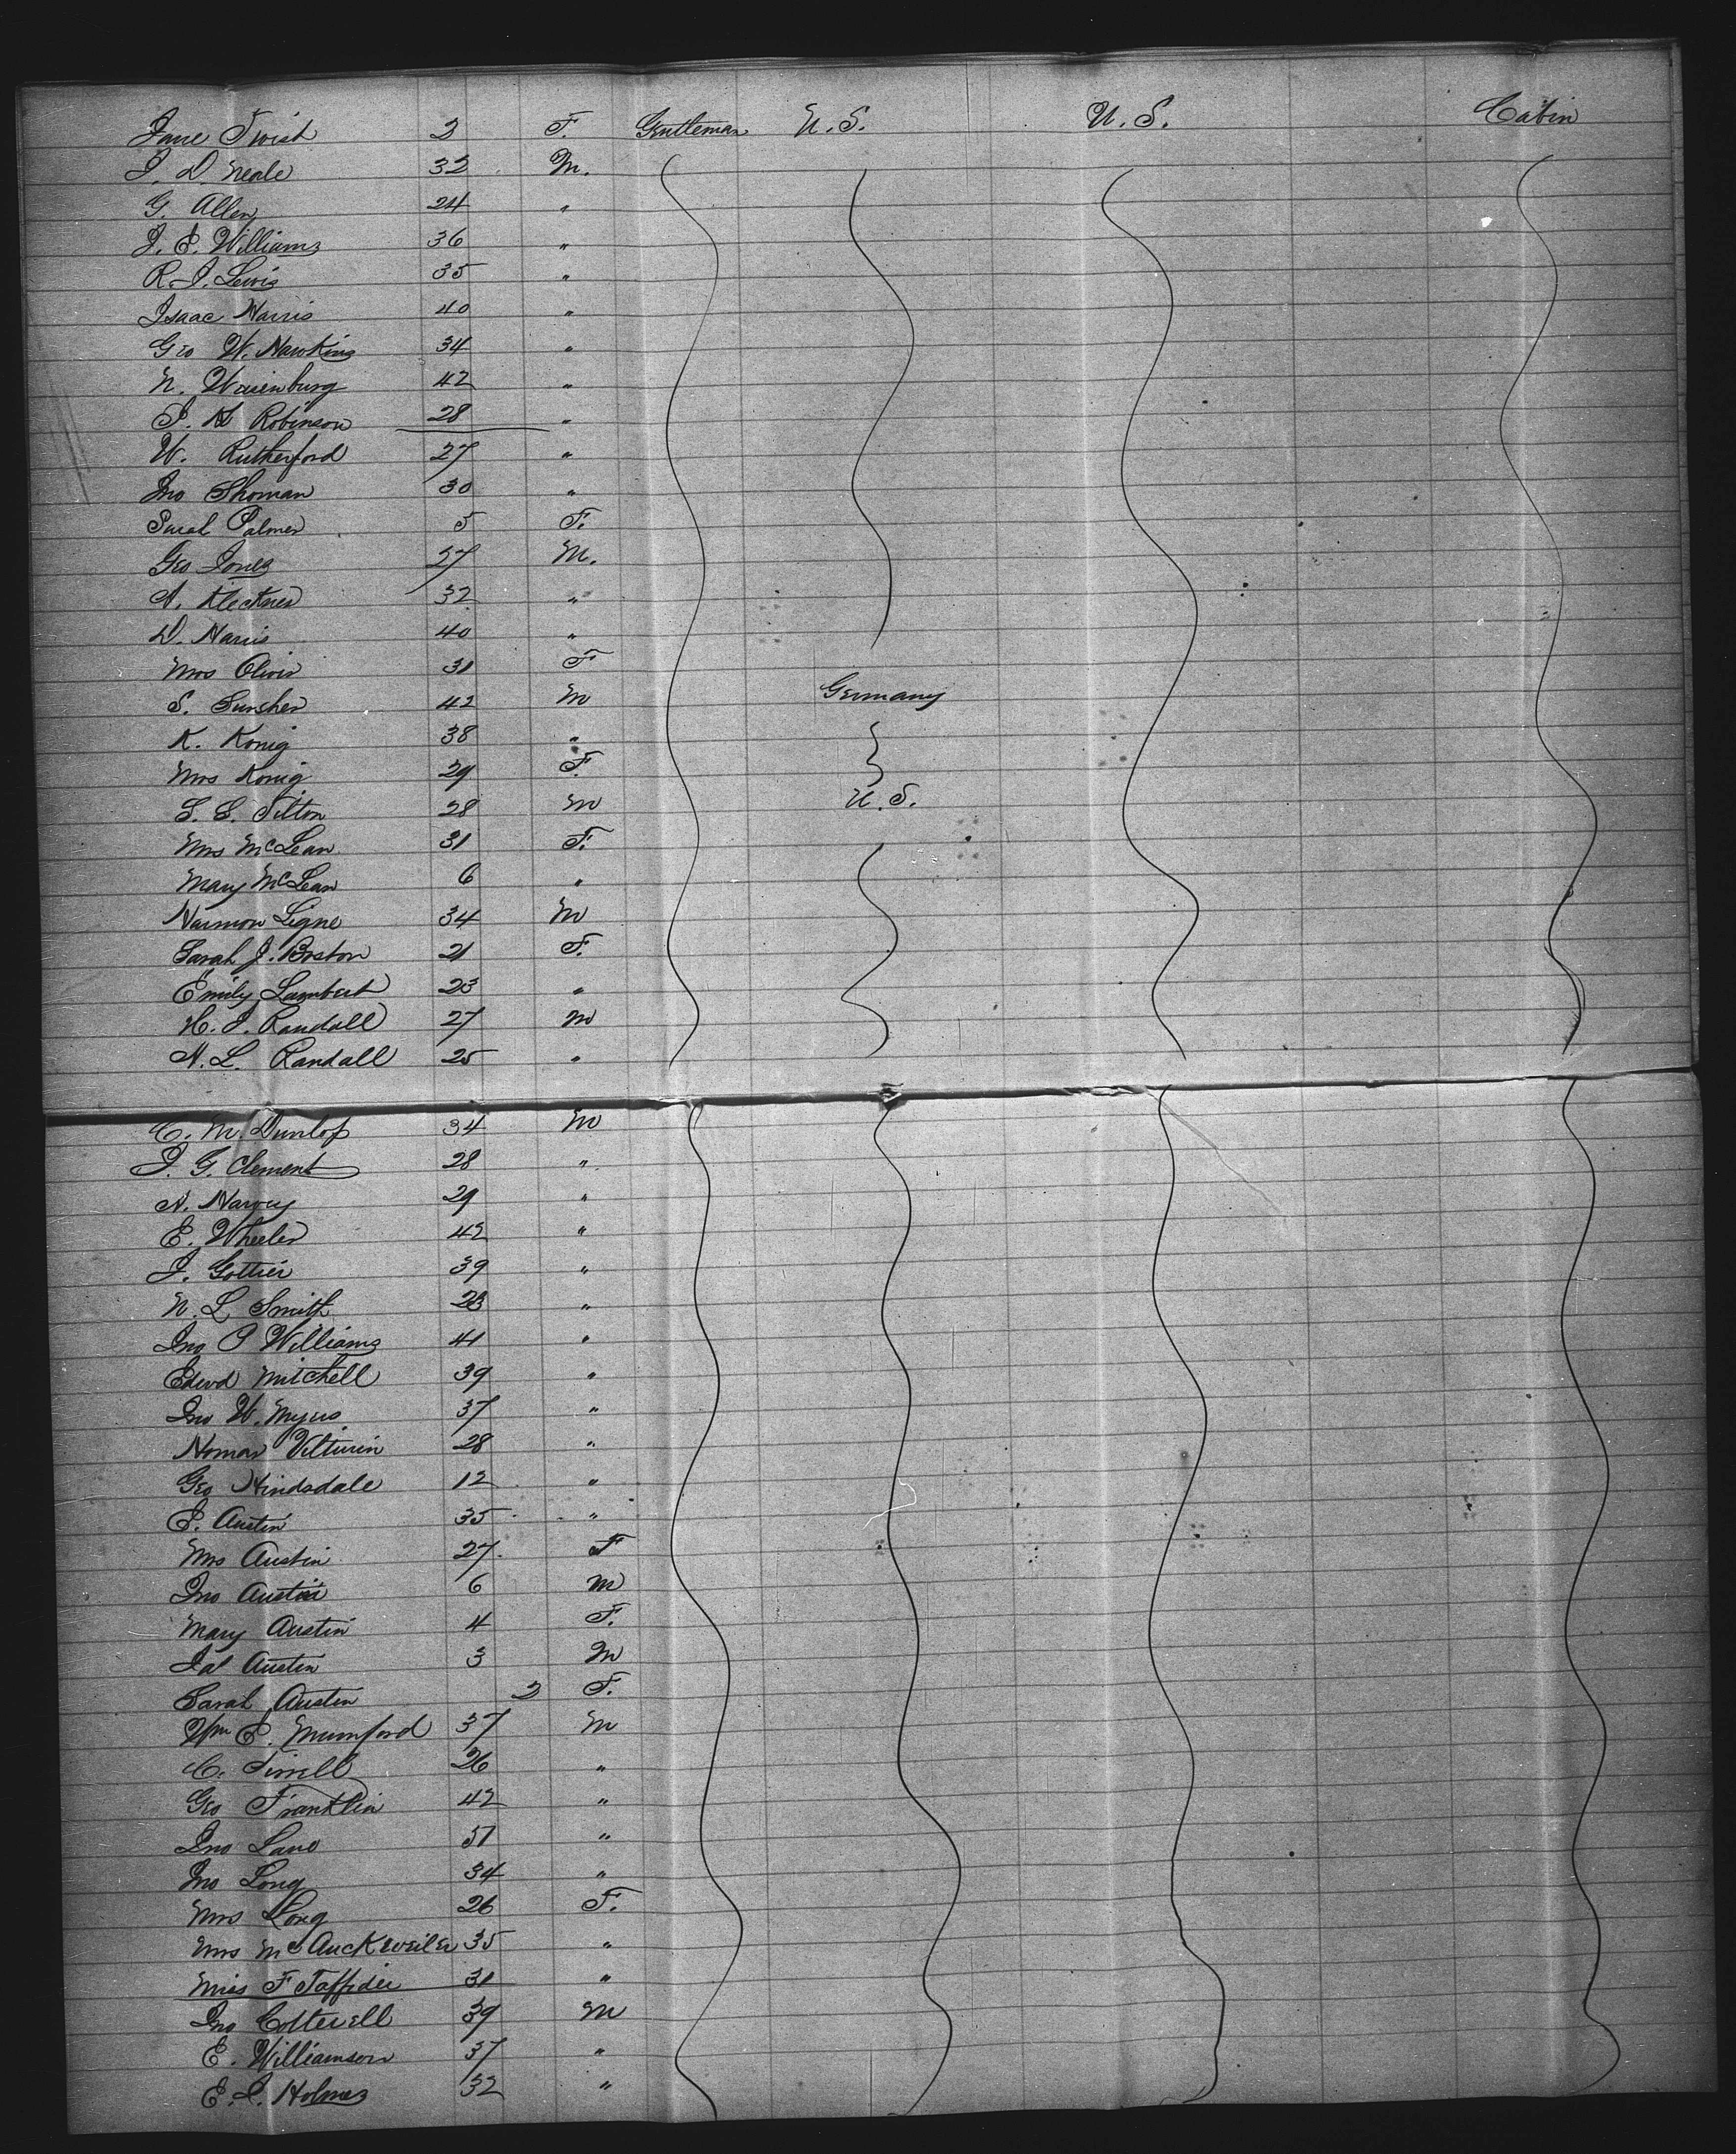 Jane Twist 2 F. Gentleman U.S. U.S. Cabin
J. D. Neale 32 M.
G. Allen 24 "
J. E. Williams 36 "
R. J. Lewis 35 "
Isaac Harris 40 "
Geo W. Hawkins 34 "
N. Warenburg 42 "
S. H Robinson 28 "
W. Rutherford 27 "
Jno Shoman 30 "
Sarah Palmer 5 F.
Geo Jones 27 M.
A. Kleckner 32 "
D. Harris 40 "
Mrs Oliver 31 F
S. 42 M Germany
K. Konig 38 "
Mrs Konig 29 F.
S. S. Tilton 28 M U.S.
Mrs McLean 31 F.
Mary McLean 6 "
Harmon Ligne 34 M
Sarah J. Boston 21 F.
Emily Lambert 23 "
H. J. Randall 27 M
A. L. Randall 25 "
C. M. Dunlop 34 M
J. G. Clement 28 "
A. Harvey 29 "
E. Wheeler 42 "
J. Gottier 39 "
N. L Smith 23 "
Jno P Williams 41 "
Edwd Mitchell 39 "
Jno W. Myers 37 "
Homar 28 "
Geo Hindsdale 12 "
E. Austin 35 "
Mrs Austin 27 F
Jno Austin 6 M
Mary Austin 4 F.
Jas Austin 3 M
Sarah Austin 2 F.
Wm E. Mumford 37 M
C. Tirrell 26 "
Geo Franklin 42 "
Jno Lane 51 "
Jno Long 34 "
Mrs Long 26 F.
Mrs McAuckweiler 35 "
Miss F 31 "
Jno Cotterell 39 M
E. Williamson 37 "
E. J. Holmes 32 "